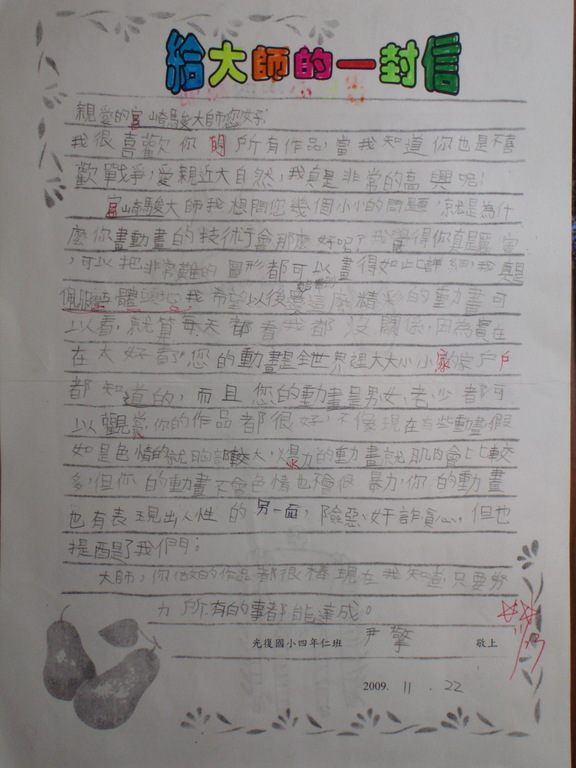 給大師的一封信
親愛的宮崎駿大師您好:
我很喜歡你的所有作品,當我知道你也是不喜
歡戰爭,愛親近大自然,我真是非常的高興呢!
宮崎駿大師我想問您幾個小小的問題,就是為什
麼你畫動畫的技術會那麼好呢?我覺得你真是厲害
,可以把非常難的圖形都可以畫得如此詳細,我真是
佩服 體 我希望以後 這麼精彩的動畫可
以看,就算每天都看我都沒關係,因為實在
在太好看了,您的動畫是全世界裡大大小小家的家戶戶
都知道的,而且您的動畫是男女老少都可
以觀賞,你的作品都很好,不像現在有些動畫假
如是色情的就胸部較大,爆力的動畫就肌肉會比較
多,但你的動畫不會色情也 很暴力,你的動畫
也有表現出人性的另一面,險惡、奸詐貪心,但也
提醒了我們:
大師,你做的作品都很棒現在我知道,只要努
力所有的事都能達成。
光復國小四年仁班 尹擎 敬上
2009. 11 . 22